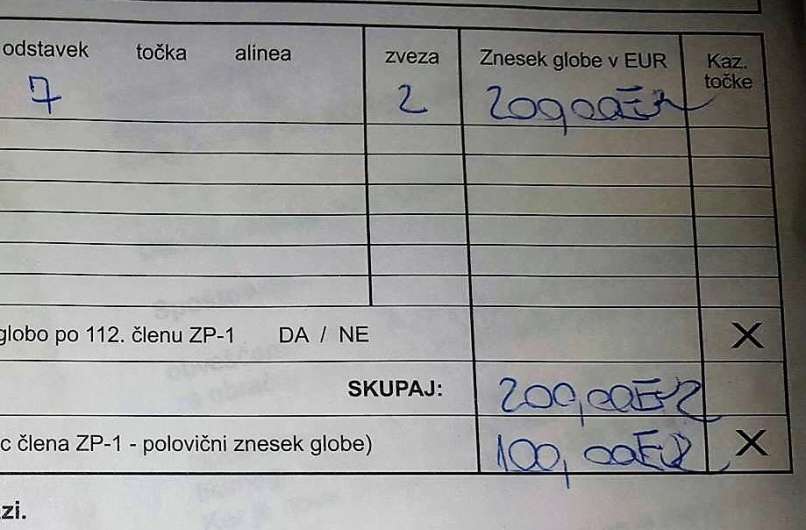 odstavek točka alinea zveza Znesek globe v EUR Kaz.
točke
7 2 200,00 EUR
globo po 112. členu ZP-1 DA / NE X
SKUPAJ: 200,00 EUR
c člena ZP-1 - polovični znesek globe) 100,00 EUR X
zi.